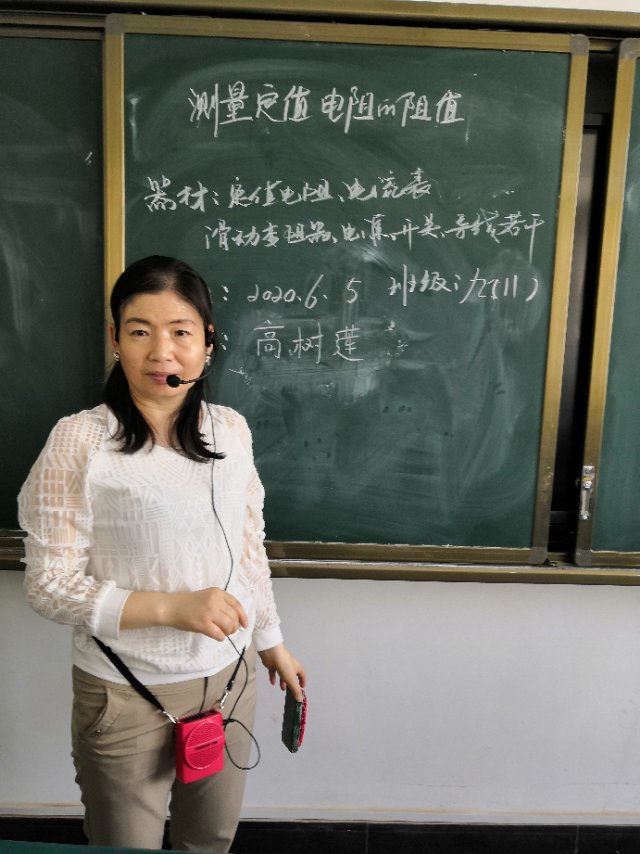 测量定值电阻的阻值
器材：定值电阻、电流表
滑动变阻器、电源、开关、导线若干
：2020.6.5 班级：九(11)
：高树莲